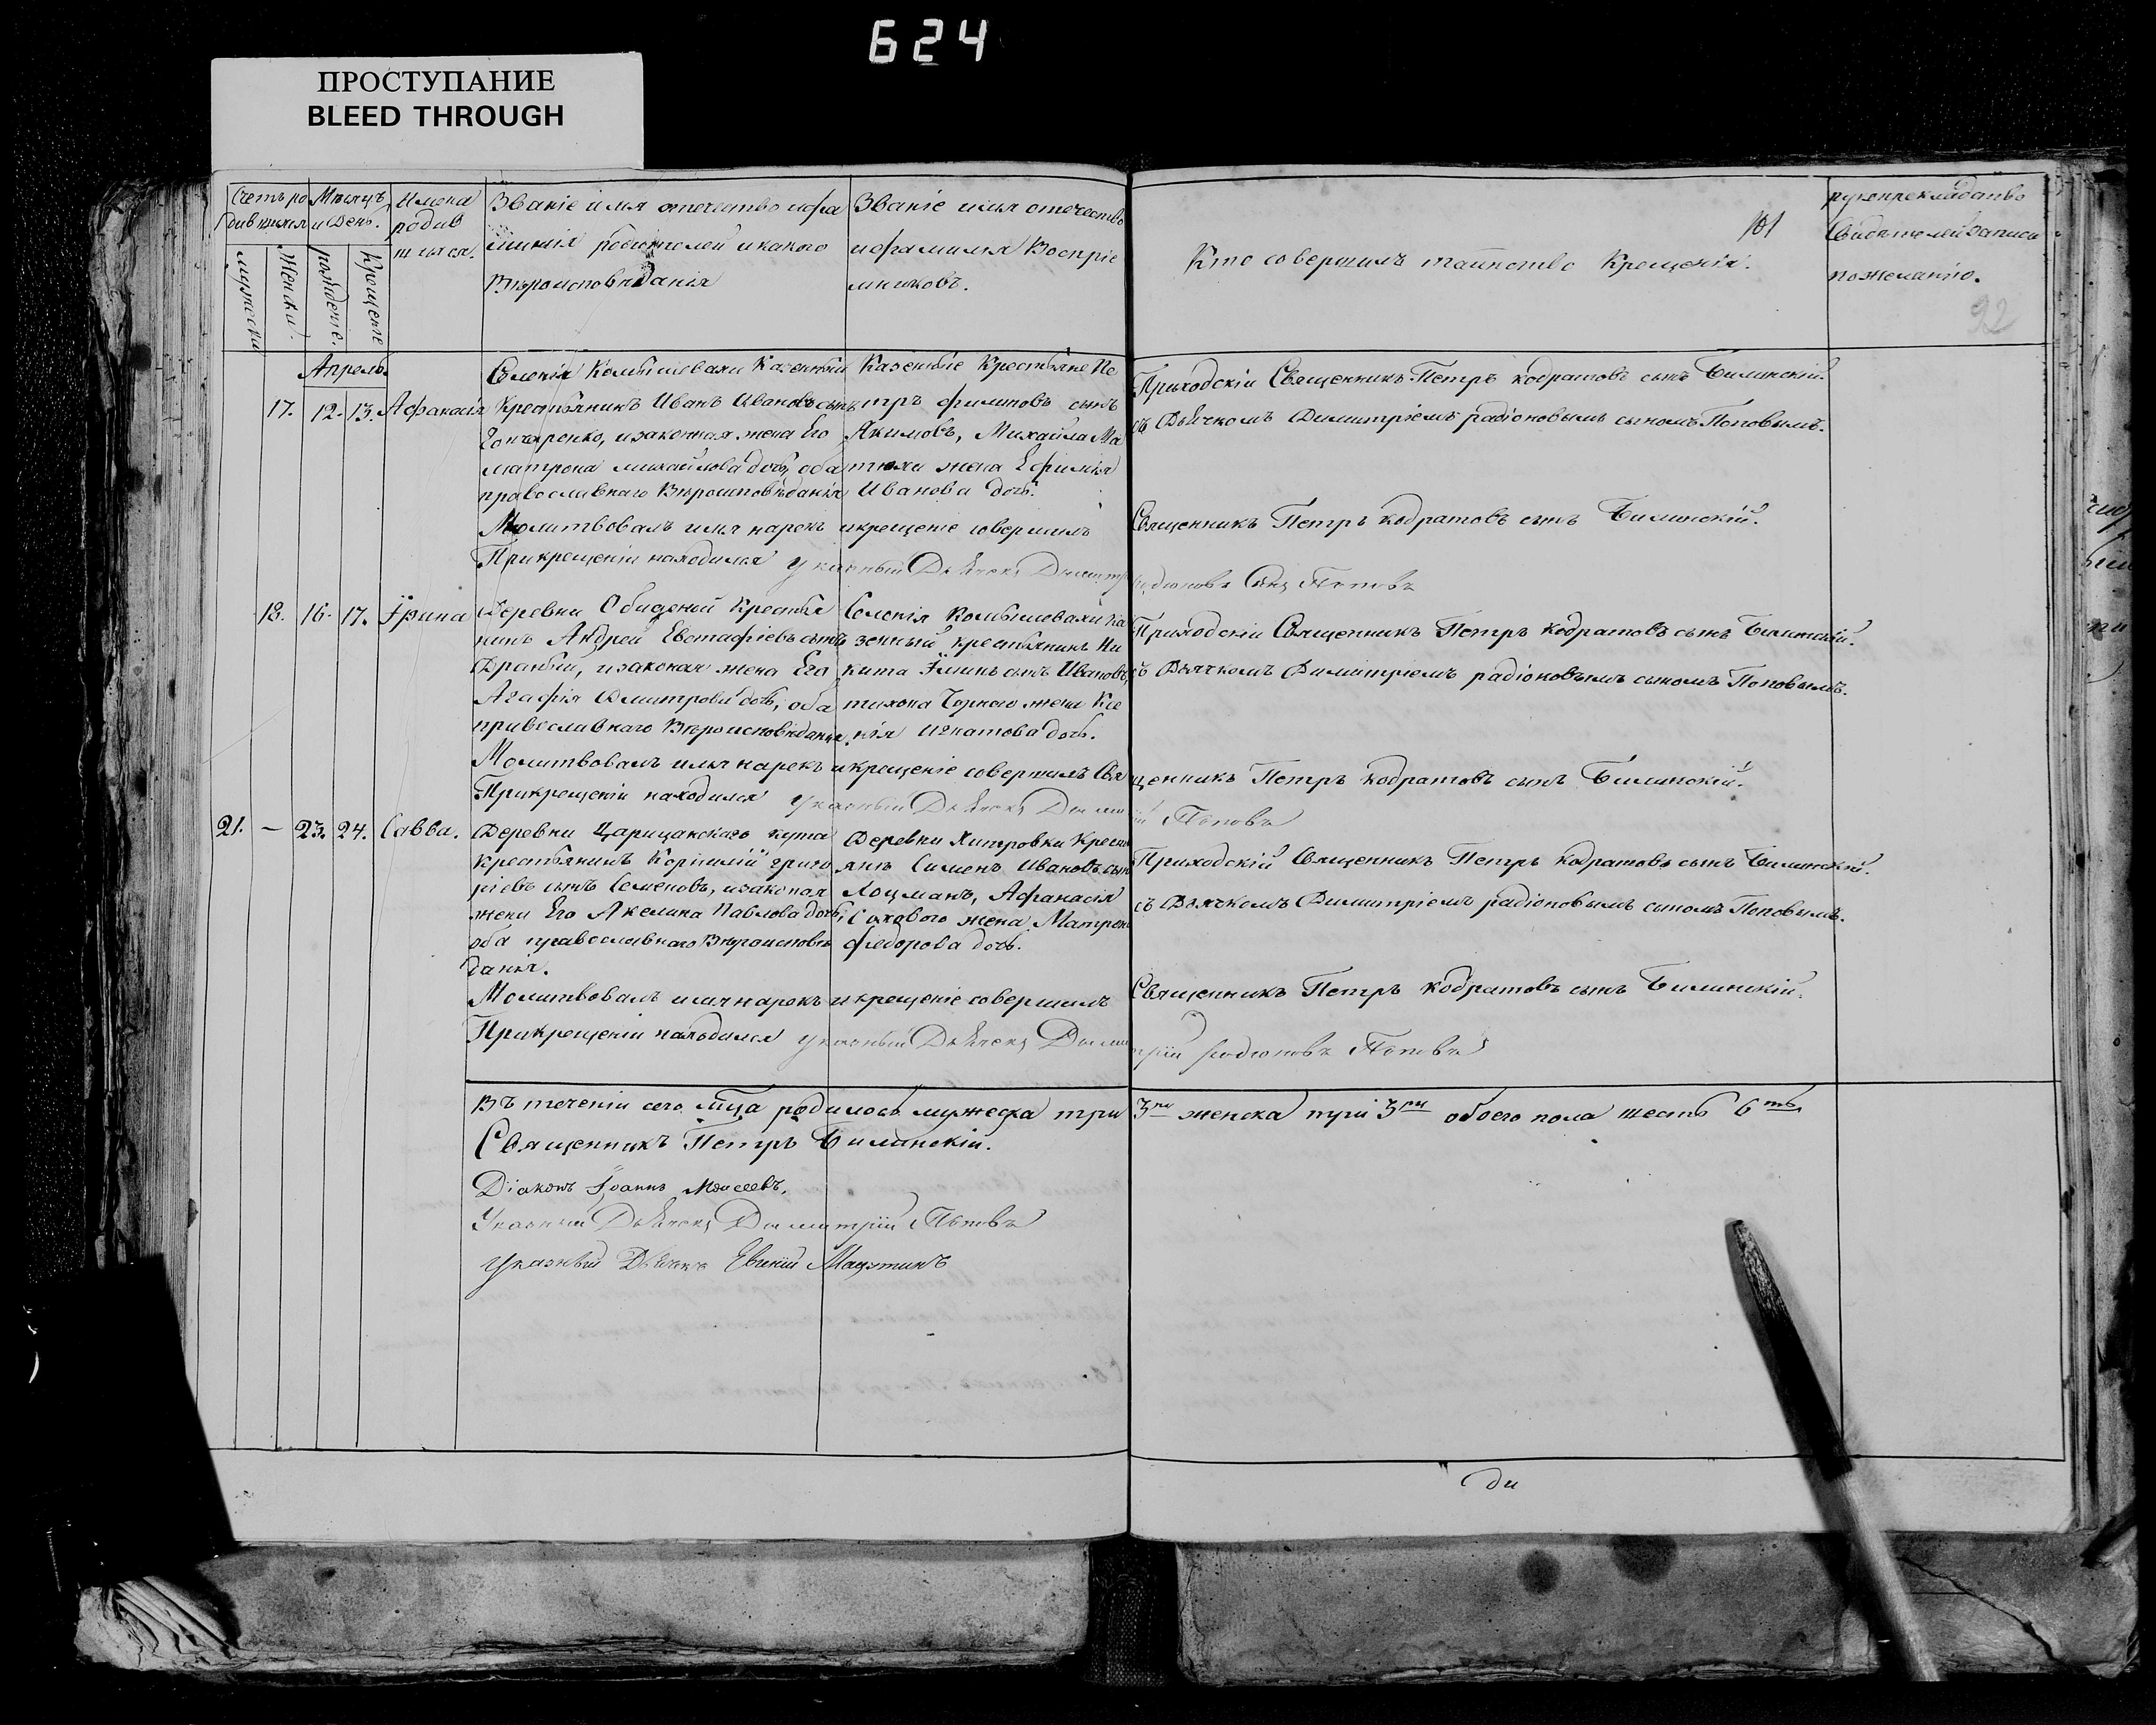 624
ПРОСТУПАНИЕ
BLEED THROUGH
Счетъ ро
дившихся
Мѣсяцъ
и День.
Имена
родив
шихся.
мужеска
Женска
рожденіе.
Крещеніе
Званіе имя отечество и фа
милія родителей и какого
Вѣроисповѣданія
Званіе имя отечество
и фамилія Воспріе
мниковъ.
Кто совершилъ таинство Крещенія.
101
рукоприкладство
Свидѣтелей записи
по желанію.
92
Апрель.
17. 12. 13. Афанасія
Селенія Комышевахи Казенный
Крестьянинъ Иванъ Ивановъ сынъ
Гончаренко, и законная жена Его
матрона михайлова дочь, оба
православнаго Вѣроисповѣданія
Казенные Крестьяне Пе
тръ филиповъ сынъ
Якимовъ, Михайла Ма
тюхи жена Ефимія
Иванова дочь.
Приходскій Священникъ Петръ кодратовъ сынъ Билинскій.
съ Дьячкомъ Димитріемъ радіоновымъ сыномъ Поповымъ.
Молитвовалъ имя нарекъ и крещеніе совершилъ Священникъ Петръ кодратовъ сынъ Билинскій.
При крещеніи находился указный Дьячекъ Димитр Родіоновъ Сынъ Поповъ
18. 16. 17. Їрина
Деревни Обиденой Крестья
нинъ Андрей Евстафіевъ сынъ
Драный, и законая жена Его
Агафія Дмитрова дочь, оба
православнаго Вѣроисповѣданія
Селенія Комышевахи Ка
зенный крестьянинъ Ни
кита Їлинъ сынъ Ивановъ,
тихона Чорного жена Ксе
нія Игнатова дочь.
Приходскій Священникъ Петръ кодратовъ сынъ Билинскій.
съ Дьячкомъ Димитріемъ радіоновымъ сыномъ Поповымъ.
Молитвовалъ имя нарекъ и крещеніе совершилъ Священникъ Петръ кодратовъ сынъ Билинскій.
При крещеніи находился указный Дьячекъ Дымитрій Поповъ
21. — 23. 24. Савва.
Деревни Царицанскаго кута
крестьянинъ Корнилій григо
ріевъ сынъ Семеновъ, и законая
жена Его Акелина Павлова дочь,
оба православнаго Вѣроисповѣ
данія.
Деревни Хитровки Крестья
янъ Симонъ Ивановъ сынъ
Лоцманъ, Афанасія
Сохового жена Матрона
федорова дочь.
Приходскій Священникъ Петръ кодратовъ сынъ Билинскій.
съ Дьячкомъ Димитріемъ радіоновымъ сыномъ Поповымъ.
Молитвовалъ имя нарекъ и крещеніе совершилъ Священникъ Петръ кодратовъ сынъ Билинскій.
При крещеніи находился указный Дьячекъ Дымитрій Родіоновъ Поповъ
Въ теченіи сего мца родилось мужеска три 3ри женска три 3ри обоего пола шесть 6ть.
Священникъ Петръ Билинскій.
Діаконъ Їоаннъ Моисеевъ,
Указный Дьячекъ Дымитрій Поповъ
Указный Дьячекъ Евгеній
ди